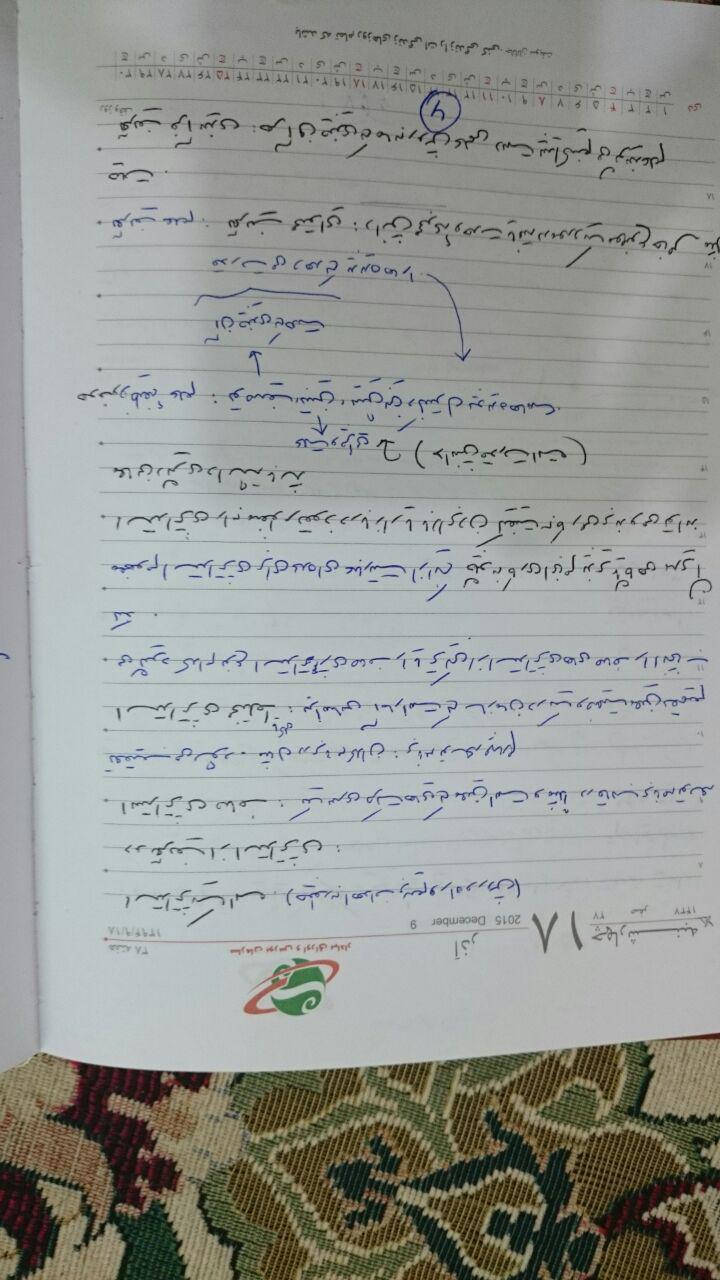 سازمان بورس و اوراق بهادار
هفته ۳۸
۱۳۹۴/۹/۱۸
آذر
2015 December 9
۱۸
چهارشنبه
۲۷ صفر ۱۴۳۷
استراتژیک است. (چطور به اهداف برسیم و راه و روش)
دو تعریف از استراتژی :
استراتژی صاف : یک سری حرکت هایی که معین است و مثلاً در قالب برنامه توسعه
تعقیب می شود. مثال در برنامه کلان : برنامه توسعه چهارم
استراتژی مختلط : براساس آمار است که سازمان در یک وضعیت معین تصمیم
می گیرد کدام نوع استراتژی صاف را یا ترکیبی از استراتژی های صاف را انتخاب
کند .
مفهوم استراتژی برای عده ای عبارتست از اینکه چگونه کاری انجام پذیرد گاهی مدیران
استراتژی را به منظور نفوذ در بازار یا بالا بردن کیفیت به کار می برند و می تواند
معانی دیگری داشته باشد
علت و چرایی (دانش قدرت است)
هدف و وظیفهٔ علم : توصیف، تبیین، پیش بینی و کنترل پدیده هاست.
آن چیزی که هست
قدرت می دهد که پدیده ها را
تعریف علم : تعریف محتوایی : دانش مجموعهٔ وحدت یافته در مورد یک موضوع خاص مثل
حیات .
تعریف فرآیندی : هر آن چیزی که ما به روش علمی دست پیدا کنیم می گویند علم
روز وقف
۱ ۲ ۳ ۴ ۵ ۶ ۷ ۸ ۹ ۱۰ ۱۱ ۱۲ ۱۳ ۱۴ ۱۵ ۱۶ ۱۷ ۱۸ ۱۹ ۲۰ ۲۱ ۲۲ ۲۳ ۲۴ ۲۵ ۲۶ ۲۷ ۲۸ ۲۹ ۳۰
دی
باشد که تمام روزهای زندگی ات را زندگی کنی. جاناتان سویفت